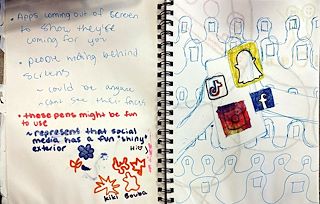 • Apps coming out of screen
to show they're
coming for you
• people hiding behind
screens
- could be anyone
- cant see their faces
• these pens might be fun
to use
~ represent that social
media has a fun "shiny"
exterior
Kiki Bouba